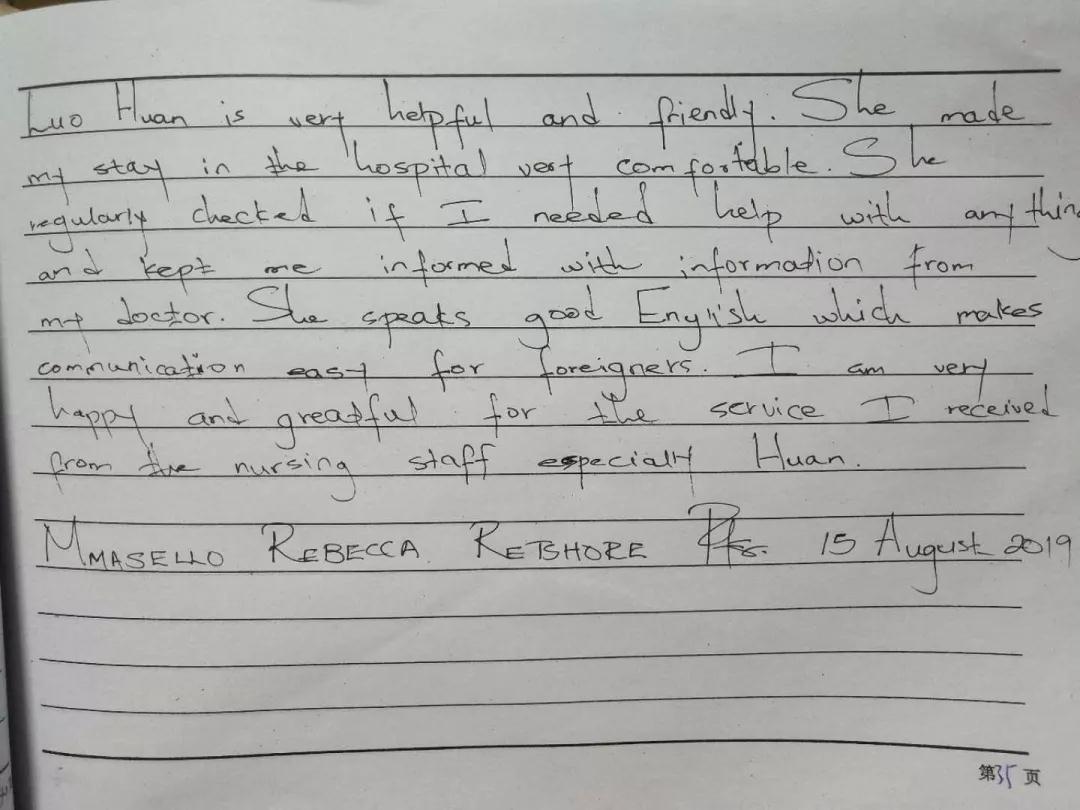 Luo Huan is very helpful and friendly. She made
my stay in the hospital very comfortable. She
regularly checked if I needed help with anything
and kept me informed with information from
my doctor. She speaks good English which makes
communication easy for foreigners. I am very
happy and greatful for the service I received
from the nursing staff especially Huan.
MMASELLO REBECCA RETSHORE 15 August 2019
第35页